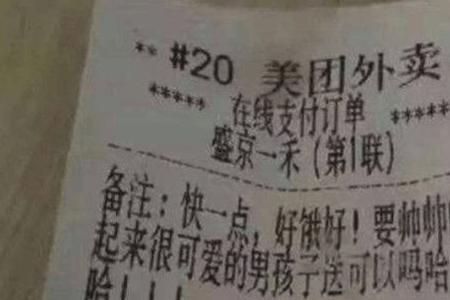 ** #20 美团外卖
***** 在线支付订单 *****
盛京一禾(第1联)
备注:快一点,好饿好!要帅帅
起来很可爱的男孩子送可以吗哈
哈!!!